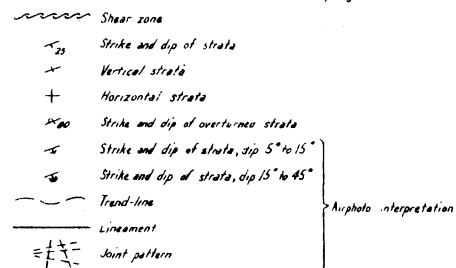 Shear zone
25 Strike and dip of strata
Vertical strata
Horizontal strata
80 Strike and dip of overturned strata
Strike and dip of strata, dip 5° to 15°
Strike and dip of strata, dip 15° to 45°
Trend-line
Airphoto interpretation
Lineament
Joint pattern